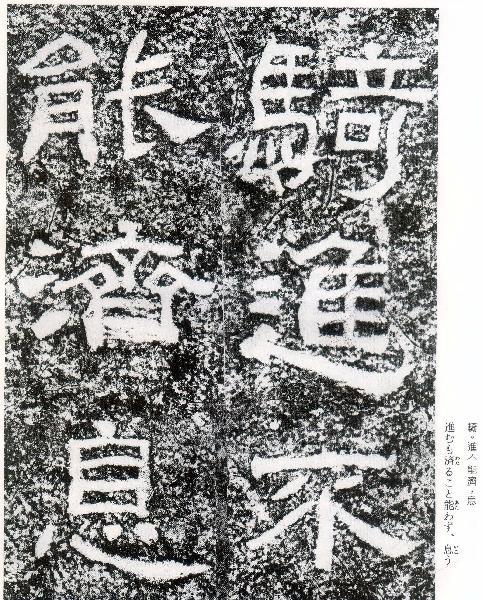 騎進不
能濟息
騎。進不能濟。息
進むも済ること能わず、息う